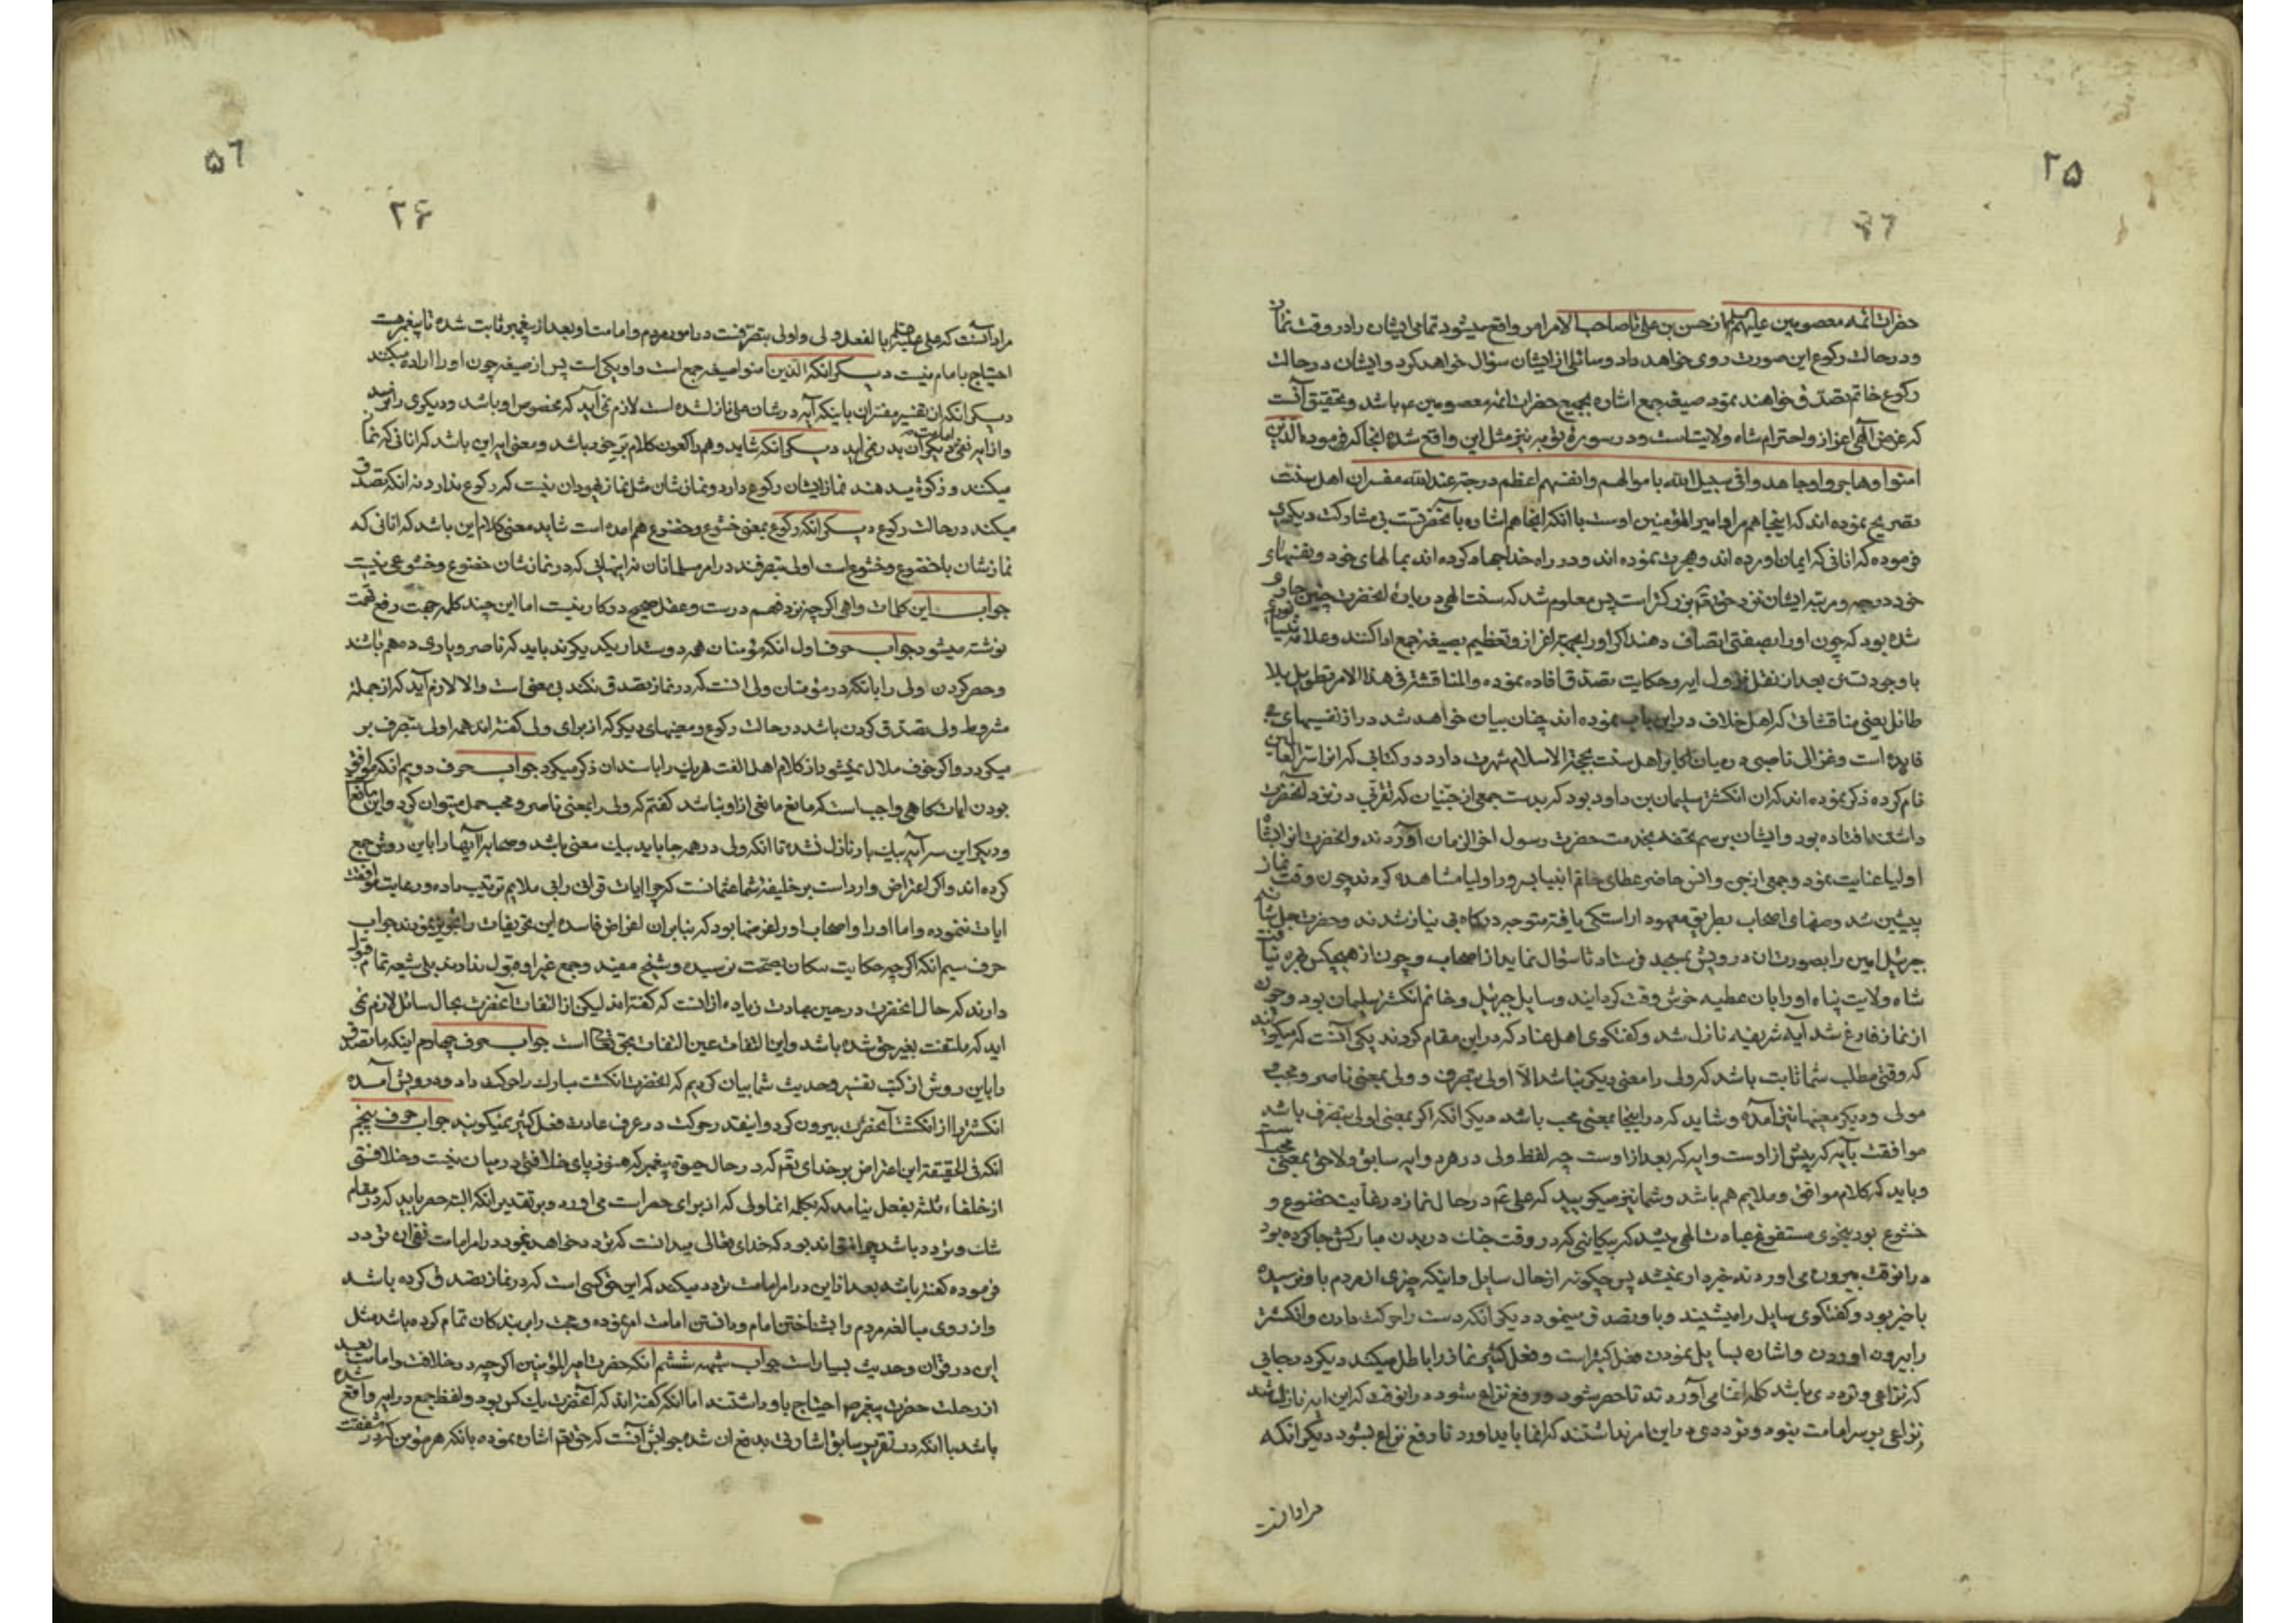 ۲۵
حضرات ائمه معصومین علیهم السلم از حسن بن علی تا صاحب الامر این امر واقع میشود تمامی ایشان را در وقت نماز
و در حالت رکوع این صورت روی خواهد داد و سائلی از ایشان سؤال خواهد کرد و ایشان در حالت
رکوع خاتم تصدق خواهند نمود صیغه جمع اشاره بجمیع حضرات ائمه معصومین ع م باشد و تحقیق آنست
که غرض الهی اعزاز و احترام شاه ولایت است و در سوره توبه نیز مثل این واقع شده انجا که فرموده الذین
امنوا وهاجروا وجاهدوا فی سبیل الله باموالهم وانفسهم اعظم درجة عند الله مفسران اهل سنت
تصریح نموده اند که اینجا هم مراد امیر المؤمنین اوست با انکه اینجا هم اشاره بآنحضرتست بی مشارکت دیگری
فرموده که انانی که ایمان اورده اند و هجرت نموده اند و در راه خدا جهاد کرده اند بمالهای خود و بنفسهای
خود درجه و مرتبه ایشان نزد حقتعم بزرگتر است پس معلوم شد که سنت الهی در باره انحضرت چنین جاری
شده بود که چون او را بصفتی اتصاف دهند اکرا او را بجهة اعزاز و تعظیم بصیغه جمع ادا کنند و علامه نیسابوری
با وجود تسنن بعد از نقل نزول ایه و حکایت تصدق افاده نموده والمناقشة فی هذا الامر تطویل بلا
طائل یعنی مناقشاتی که اهل خلاف در این باب نموده اند چنان بیان خواهد شد دراز نفسیهای بی
فایده است و غزالی ناصبی در میان اکابر اهل سنت بحجة الاسلام شهرت دارد در کتابی که انرا سر العالمین
نام کرده ذکر نموده اند که ان انکشتر سلیمان بن داود بود که بدست جمعی از جنیان که تقربی در نزد انحضرت
داشتند افتاده بود و ایشان برسم تحفه بخدمت حضرت رسول اخر الزمان آوردند و انحضرت انرا بشاه
اولیا عنایت نمود و جمعی از جن و انس حاضر عطای خاتم انبیا بسرور اولیا مشاهده کردند چون وقت نماز
پیشین شد وصفهای اصحاب بطریق معهود اراستکی یافته متوجه درکاه بی نیاز شدند و حضرت جل شانه
جبرئیل امین را بصورت ان درویش بمسجد فرستاد تا سؤال نماید از اصحاب و چون از هیچکس بهره نیافت
شاه ولایت پناه او را بان عطیه خوش وقت کردانید و سایل جبرئیل و خاتم انکشتر سلیمان بود و چون
از نماز فارغ شد آیه شریفه نازل شد و کفتکوی اهل عناد که در این مقام کردند یکی آنست که میکویند
که وقتی مطلب شما ثابت باشد که ولی را معنی دیکر نباشد الا اولی بتصرف و ولی بمعنی ناصر و محب و
مولی و دیکر معنیها نیز آمده و شاید که در اینجا بمعنی محب باشد دیکر انکه اکر بمعنی اولی بتصرف باشد
موافقت بآیه که پیش از اوست و ایه که بعد از اوست چه لفظ ولی در هر دو ایه سابق و لاحق بمعنی محبست
و باید که کلام موافق و ملایم هم باشد و شما نیز میکویید که علی ع م در حال نماز در غایت خضوع و
خشوع بود بنحوی مستغرق عبادت الهی میشد که پیکانی که در وقت جنك در بدن مبارکش جا کرده بود
در انوقت بیرون می اوردند خبردار نمیشد پس چکونه از حال سایل و اینکه چیزی از مردم باو نرسیده
باخبر بود و کفتکوی سایل را میشنید و باو تصدق مینمود دیکر انکه دست را حرکت دادن و انکشتر
را بیرون اوردن و اشاره بسایل نمودن فعل کثیر است و فعل کثیر نماز را باطل میکند دیکر در جایی
که نزاعی و ترددی باشد کلمه انما می آورند تا حصر شود و رفع نزاع شود در انوقت که این ایه نازل شد
نزاعی بر سر امامت نبود و ترددی در این امر نداشتند که انما باید اورد تا رفع نزاع بشود دیکر انکه
مراد انست
۵٦
۲۶
مراد آنست که علی علیه السلم بالفعل ولی و اولی بتصرفست در امور مردم و امامت او بعد از پیغمبر ثابت شده تا پیغمبر هست
احتیاج بامام نیست دیکر انکه الذین امنوا صیغه جمع است و او یکی است پس از صیغه چون او را اراده میکند
دیکر انکه از تفسیر مفسران باینکه آیه در شان علی نازل شده است لازم نمی آید که مخصوص او باشد و دیکری را نرسد
و از ایه نفی امامت دیکری بدر نمی اید دیکر انکه شاید وهم راکعون کلام بر حق باشد و معنی ایه این باشد که انانی که نماز
میکنند و زکوة میدهند نماز ایشان رکوع دارد و نمازشان مثل نماز یهودان نیست که رکوع ندارد نه انکه تصدق
میکند در حالت رکوع دیکر انکه رکوع بمعنی خشوع و خضوع هم امده است شاید معنی کلام این باشد که انانی که
نمازشان باخضوع و خشوع است اولی بتصرفند در امر مسلمانان نه انهایی که در نمازشان خضوع و خشوعی نیست
جواب این کلمات واهی اکرچه نزد فهم درست و عقل صحیح در کار نیست اما این چند کلمه جهت رفع تهمت
نوشته میشود جواب حرف اول انکه مؤمنان همه دوستدار یکدیکرند باید که ناصر و یاری ده هم باشند
و حصر کردن ولی را بانکه در مؤمنان ولی انست که در نماز تصدق نکند بی معنی است والا لازم آید که از جمله
شروط ولی تصدق کردن باشد در حالت رکوع و معنیهای دیکر که از برای ولی کفته اند همه اولی بتصرف بر
میکردد و اکر خوف ملال نمیشد از کلام اهل الفت هر یك را باسندان ذکر میکرد جواب حرف دویم انکه موافق
بودن ایات کاهی واجب است که مانع مانعی از او نباشد کفتم که ولی را بمعنی ناصر و محب حمل میتوان کرد و این مانع
و دیکر این سه آیه بیك بار نازل نشده تا انکه ولی در همه جا باید بیك معنی باشد و صحابه آیها را باین روش جمع
کرده اند و اکر اعتراض وارد است بر خلیفه شما عثمانست که چرا ایات قرانی را بی ملایم ترتیب داده و رعایت موافقت
ایات ننموده و اما او را و اصحاب او را غرضها بود که بنابر ان اغراض فاسده این تحریفات را تجویز نمودند جواب
حرف سیم انکه اکرچه حکایت پیکان بصحت نرسیده و شیخ مفید و جمع غیر او قبول ندارند بلی شیعه تمام قبول
دارند که حال انحضرت در حین عبادت زیاده از انست که کفته اند لیکن از التفات آنحضرت بحال سائل لازم نمی
اید که ملتفت بغیر حق شده باشد و این التفات عین التفات بحق تعالی است جواب حرف چهارم اینکه ما تصدق
را باین روش از کتب تفسیر و حدیث شما بیان کردیم که انحضرت انکشت مبارك را حرکت داد و درویش آمده
انکشتر را از انکشت آنحضرت بیرون کرد و اینقدر حرکت در عرف عادت فعل کثیر نمیکویند جواب حرف پنجم
انکه فی الحقیقة این اعتراض بر خدای تعم که در حال حیوة پیغمبر که هنوز پای خلافتی در میان نیست و خلافتی
از خلفاء ثلثه بفعل نیامده که بکلمه انما ولی که از برای حصر است می اورد و بر تقدیر انکه البته حصر باید که در مقام
شك و تردد باشد چرا نتواند بود که خدای تعالی میدانست که تردد خواهد نمود در امر امامت نفی ان تردد
فرموده کفته باشد بعد از این در امر امامت تردد میکنند که این حق کسی است که در نماز تصدق کرده باشد
و از روی مبالغه مردم را بشناختن امام و دانستن امامت امر نموده و حجت را بر بندکان تمام کرده باشد مثل
این در قران و حدیث بسیار است جواب شبهه ششم آنکه حضرت امیر المؤمنین اکرچه در خلافت و امامت بعد
از رحلت حضرت پیغمبر ص احتیاج باو داشتند اما انکه کفته اند که آنحضرت یك کس بود و لفظ جمع در ایه واقع شده
باشد با انکه در تقریر سابق اشارتی بدفع ان شد جوابش آنست که حقتعم اشاره نموده بانکه هر مؤمن که در شفقت